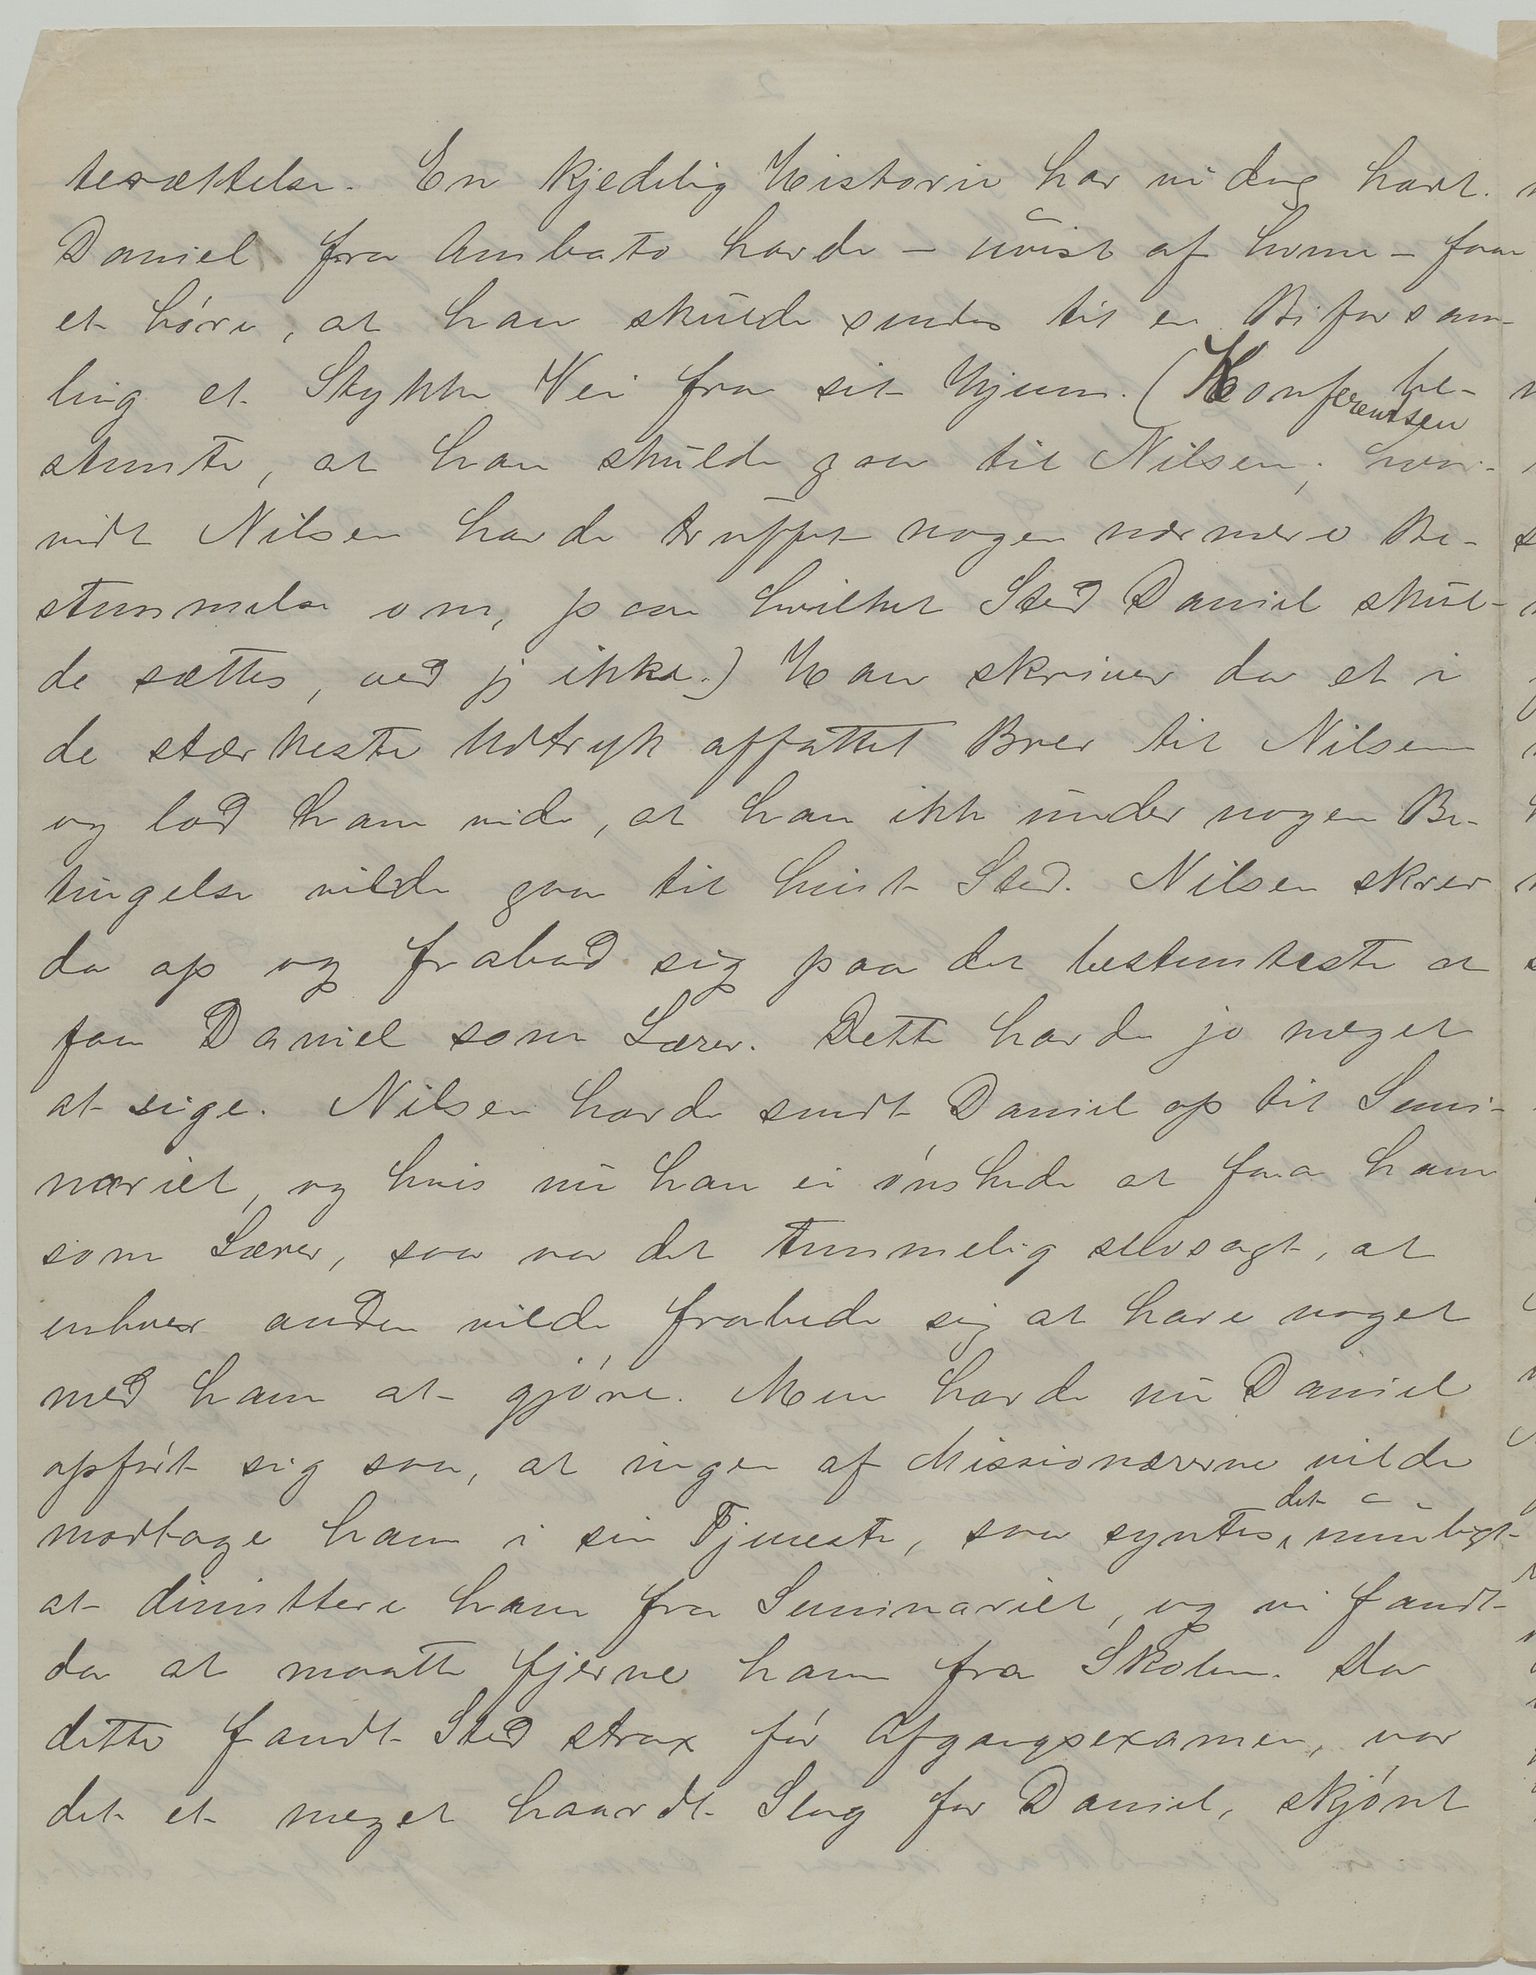 terættelse. En kjedelig Historie har vi dog havt.
Daniel fra Ambato havde – uvist af hvem – faaet
et høre, at han skulde sendes til en Biforsam-
ling et Stykke Vei fra sit Hjem. (Konferentsen be-
stemte, at han skulde gaa til Nilsen; hvor-
vidt Nilsen havde truffet nogen nærmere Be-
stemmelse om, paa hvilket Sted Daniel skul-
de sættes, ved jeg ikke.) Han skriver da et i
de stærkeste Udtryk affattet Brev til Nilsen
og lod ham vide, at han ikke under nogen Be-
tingelse vilde gaa til hint Sted. Nilsen skrev
da op og frabad sig paa det bestemteste at
faa Daniel som Lærer. Dette havde jo meget
at sige. Nilsen havde sendt Daniel op til Semi-
nariet, og hvis nu han ei ønskede at faa ham
som Lærer, saa var det temmelig selvsagt, at
enhver anden vilde frabede sig at have noget
med ham at gjøre. Men havde nu Daniel
opført sig saa, at ingen af Missionærerne vilde
modtage ham i sin Tjeneste, saa syntes det umuligt
at dimittere ham fra Seminariet, og vi fandt
da at maatte fjerne ham fra Skolen. Da
dette fandt Sted strax før Afgangsexamen, var
det et meget haardt Slag for Daniel, skjønt